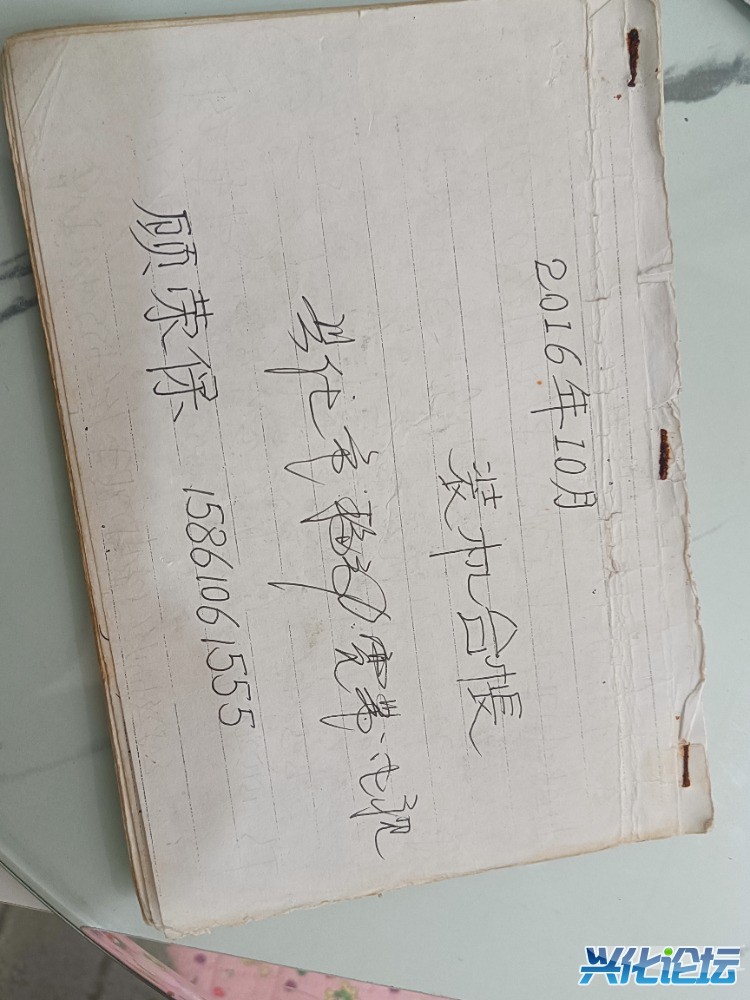 2016年10月
装机台帐
兴化市移动.宽带.电视
顾荣保 15861061555
兴化论坛